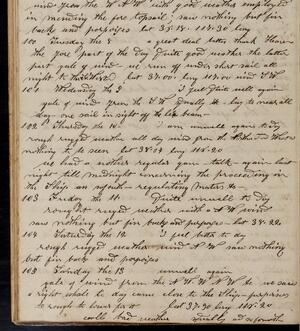 wind from the N N W with good weather employed
in mending the fore topsail saw nothing but fin
back and porpoises lat 38.18 long 114.30
100 Tuesday the 8 a great deal better thank
the fore part of the day quite good weather the latter
part gale of wind we run off under short sail all
night to lat 37.00 long 114.00 wind S W
101 Wednesday the 9 I got still well again
gale of wind from the S W finally lay to near all
day one sail in sight off the beam
102 Thursday the 10 am unwell again to day
rough rugged weather all day wind from the
nothing to be seen lat 38.04 long 115.20
we had a nother regular gam talk again last
night till midnight concerning the proceeding in
the Ship an so forth regulating maters &c
103 Friday the 11 Quite unwell to day
rough rugged weather with a N W wind
saw nothing but fin backs and porpoises lat 38.22
104 Saturday the 12 I got better to day
rough rugged weather wind N N W saw nothing
but fin back and porpoises
105 Sunday the 13 unwell again
gale of wind from the N W W N W we saw
a right whale to day came close to the Ship porpoises
to rough to lower for lat 37.30 long 115.20
cold bad weather and so forth